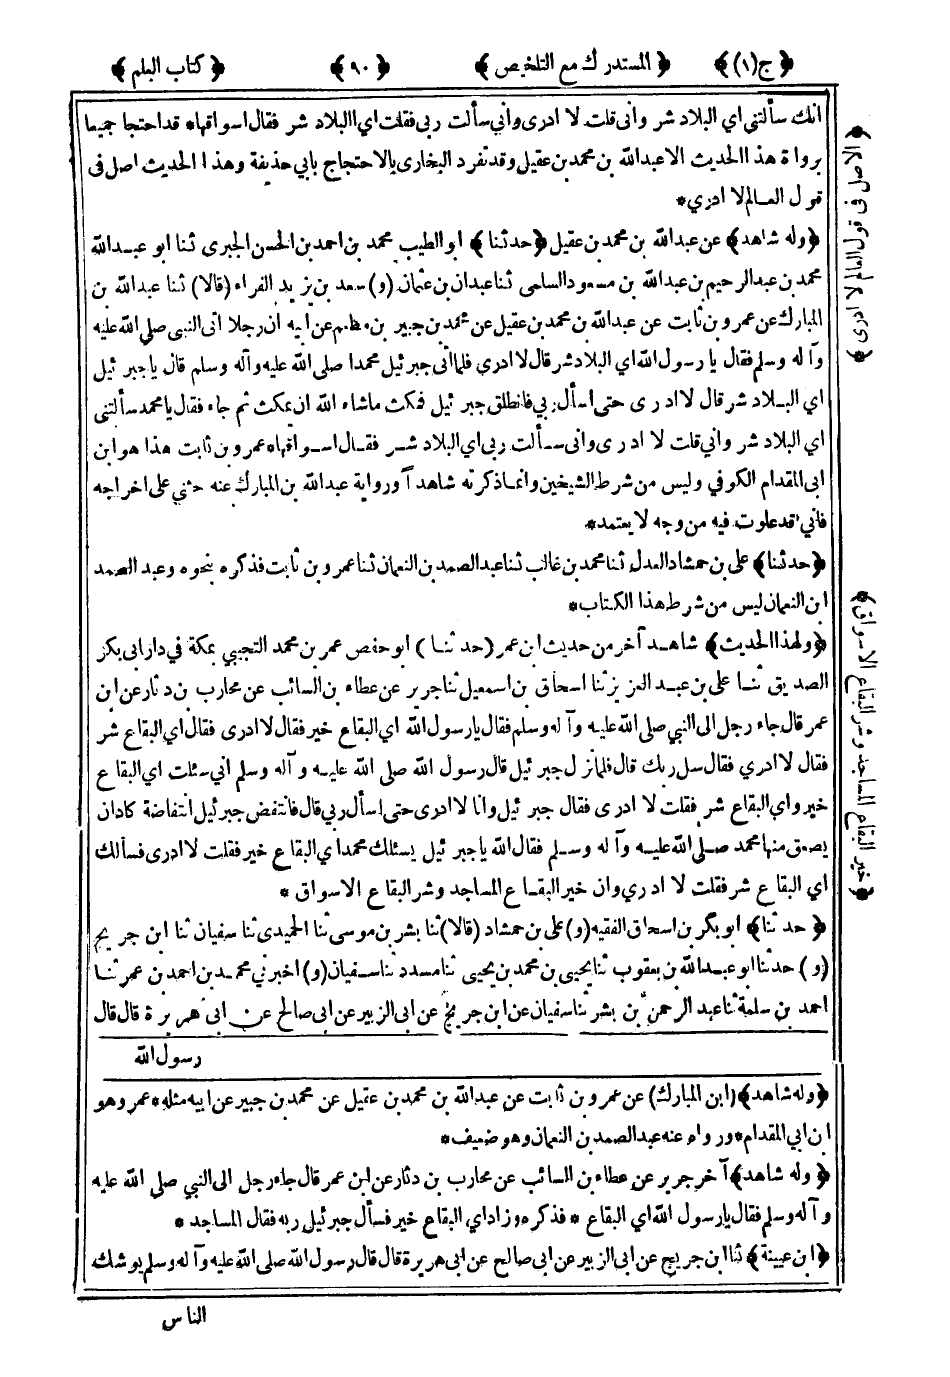 ﴿ ج (١) ﴾ ﴿ المستدرك مع التلخيص ﴾ ﴿ ٩٠ ﴾ ﴿ كتاب العلم ﴾
انك سألتنى اي البلاد شر وانى قلت لا ادرى وانى سألت ربى فقلت اي البلاد شر فقال اسواقها * قد احتجا جميعا
برواة هذا الحديث الا عبدالله بن محمد بن عقيل وقد تفرد البخارى بالاحتجاج بابي حذيفة وهذا الحديث اصل فى
قول العالم لا ادري *
﴿ وله شاهد ﴾ عن عبدالله بن محمد بن عقيل ﴿ حدثنا ﴾ ابوالطيب محمد بن احمد بن الحسن الحيرى ثنا ابو عبدالله
محمد بن عبدالرحيم بن عبدالله بن مسعود السلمى ثنا عبدان بن عثمان (و) سعد بن يزيد الفراء (قالا) ثنا عبدالله بن
المبارك عن عمرو بن ثابت عن عبدالله بن محمد بن عقيل عن محمد بن جبير بن مطعم عن ابيه ان رجلا اتى النبى صلى الله عليه
وآله وسلم فقال يا رسول الله اي البلاد شر قال لا ادري فلما اتى جبرئيل محمدا صلى الله عليه وآله وسلم قال يا جبرئيل
اي البلاد شر قال لا ادرى حتى اسأل ربي فانطلق جبرئيل فمكث ماشاء الله ان يمكث ثم جاء فقال يا محمد سألتنى
اي البلاد شر واني قلت لا ادرى وانى سألت ربى اي البلاد شر فقال اسواقها * عمرو بن ثابت هذا هو ابن
ابى المقدام الكوفي وليس من شرط الشيخين وانما ذكرته شاهدا ورواية عبدالله بن المبارك عنه حثني على اخراجه
فاني قد علوت فيه من وجه لا يعتمد *
﴿ حدثنا ﴾ على بن حمشاد العدل ثنا محمد بن غالب ثنا عبدالصمد بن النعمان ثنا عمرو بن ثابت فذكره بنحوه وعبد الصمد
ابن النعمان ليس من شرط هذا الكتاب *
﴿ ولهذا الحديث ﴾ شاهد آخر من حديث ابن عمر (حدثنا) ابوحفص عمر بن محمد التجيبي بمكة في دار ابى بكر
الصديق ثنا على بن عبد العزيز ثنا اسحاق بن اسمعيل ثنا جرير عن عطاء بن السائب عن محارب بن دثار عن ابن
عمر قال جاء رجل الى النبي صلى الله عليه وآله وسلم فقال يا رسول الله اي البقاع خير فقال لا ادرى فقال اي البقاع شر
فقال لا ادري فقال سل ربك قال فلما نزل جبرئيل قال رسول الله صلى الله عليه وآله وسلم اني سئلت اي البقاع
خير واي البقاع شر فقلت لا ادرى فقال جبرئيل وانا لا ادرى حتى اسأل ربي قال فانتفض جبرئيل انتفاضة كادان
يصعق منها محمد صلى الله عليه وآله وسلم فقال الله يا جبرئيل يسئلك محمد اي البقاع خير فقلت لا ادرى فسألك
اي البقاع شر فقلت لا ادري وان خير البقاع المساجد وشر البقاع الاسواق *
﴿ حدثنا ﴾ ابوبكر بن اسحاق الفقيه (و) على بن حمشاد (قالا) ثنا بشر بن موسى ثنا الحميدى ثنا سفيان ثنا ابن جريج
(و) حدثنا ابو عبدالله بن يعقوب ثنا يحيى بن محمد بن يحيى ثنا مسدد ثنا سفيان (و) اخبرني محمد بن احمد بن عمر ثنا
احمد بن سلمة ثنا عبد الرحمن بن بشر ثنا سفيان عن ابن جريج عن ابى الزبير عن ابى صالح عن ابى هريرة قال قال
رسول الله
﴿ وله شاهد ﴾ (ابن المبارك) عن عمرو بن ثابت عن عبدالله بن محمد بن عقيل عن محمد بن جبير عن ابيه مثله * عمرو هو
ابن ابي المقدام * ورواه عنه عبدالصمد بن النعمان وهو ضعيف *
﴿ وله شاهد ﴾ آخر جرير عن عطاء بن السائب عن محارب بن دثار عن ابن عمر قال جاء رجل الى النبي صلى الله عليه
وآله وسلم فقال يا رسول الله اي البقاع * فذكره وزاد اي البقاع خير فسأل جبرئيل ربه فقال المساجد *
﴿ ابن عيينة ﴾ ثنا ابن جريج عن ابى الزبير عن ابى صالح عن ابى هريرة قال قال رسول الله صلى الله عليه وآله وسلم يوشك
الناس
﴿ الاصل فى قول العالم لا ادرى ﴾
﴿ خير البقاع المساجد وشر البقاع الاسواق ﴾